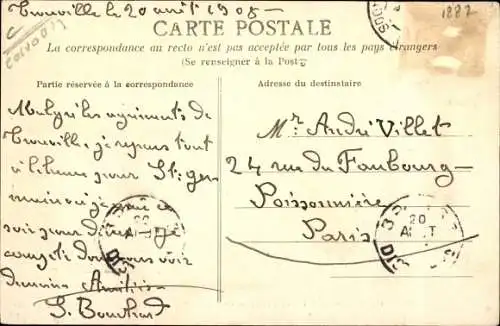 Trouville le 20 août 1905 -
1882
CARTE POSTALE
La correspondance au recto n'est pas acceptée par tous les pays étrangers
(Se renseigner à la Poste)
Partie réservée à la correspondance
Malgré les agréments de
Trouville, je repars tout
à l'heure pour St. Ger
où je
soir pour
compte vous voir
demain Amitiés
S. Bouchard
Adresse du destinataire
Mr. André Villet
24 rue du Faubourg-
Poissonnière
Paris
20
20